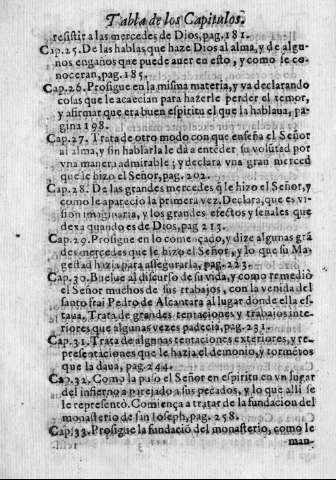 Tabla de los Capitulos.
resistir a las mercedes de Dios, pag. 181.
Cap. 25. De las hablas que haze Dios al alma, y de algu-
nos engaños que puede auer en esto, y como se co-
noceran, pag. 185.
Cap. 26. Prosigue en la misma materia, y va declarando
cosas que le acaecian para hazerle perder el temor,
y afirmar que era buen espiritu el que la hablaua, pa-
gina 198.
Cap. 27. Trata de otro modo con que enseña el Señor
al alma, y sin hablarla le dà a enteder su volũtad por
vna manera admirable; y declara vna gran merced
que le hizo el Señor, pag. 202.
Cap. 28. De las grandes mercedes q̃ le hizo el Señor, y
como le apareciò la primera vez. Declara, que es vi-
sion imaginaria, y los grandes efectos y señales que
dexa quando es de Dios, pag 213.
Cap. 29. Prosigue en lo comẽçado, y dize algunas grã
des mercedes que le hizo el Señor, y lo que su Ma-
gestad hazia para assegurarla, pag. 223.
Cap. 30. Buelue al discurso de su vida, y como remediò
el Señor muchos de sus trabajos, con la venida del
santo frai Pedro de Alcantara al lugar donde ella es-
taua. Trata de grandes tentaciones y trabajos inte-
riores que algunas vezes padecia, pag. 231.
Cap. 31. Trata de algunas tentaciones exteriores, y re-
presentaciones que le hazia el demonio, y tormẽtos
que la daua, pag. 244.
Cap. 32. Como la puso el Señor en espiritu en vn lugar
del infierno aparejado a sus pecados, y lo que alli se
le representò. Comiença a tratar de la fundacion del
monasterio de san Ioseph, pag. 258.
Cap. 33. Prosigue la fundaciõ del monasterio, como le
man-